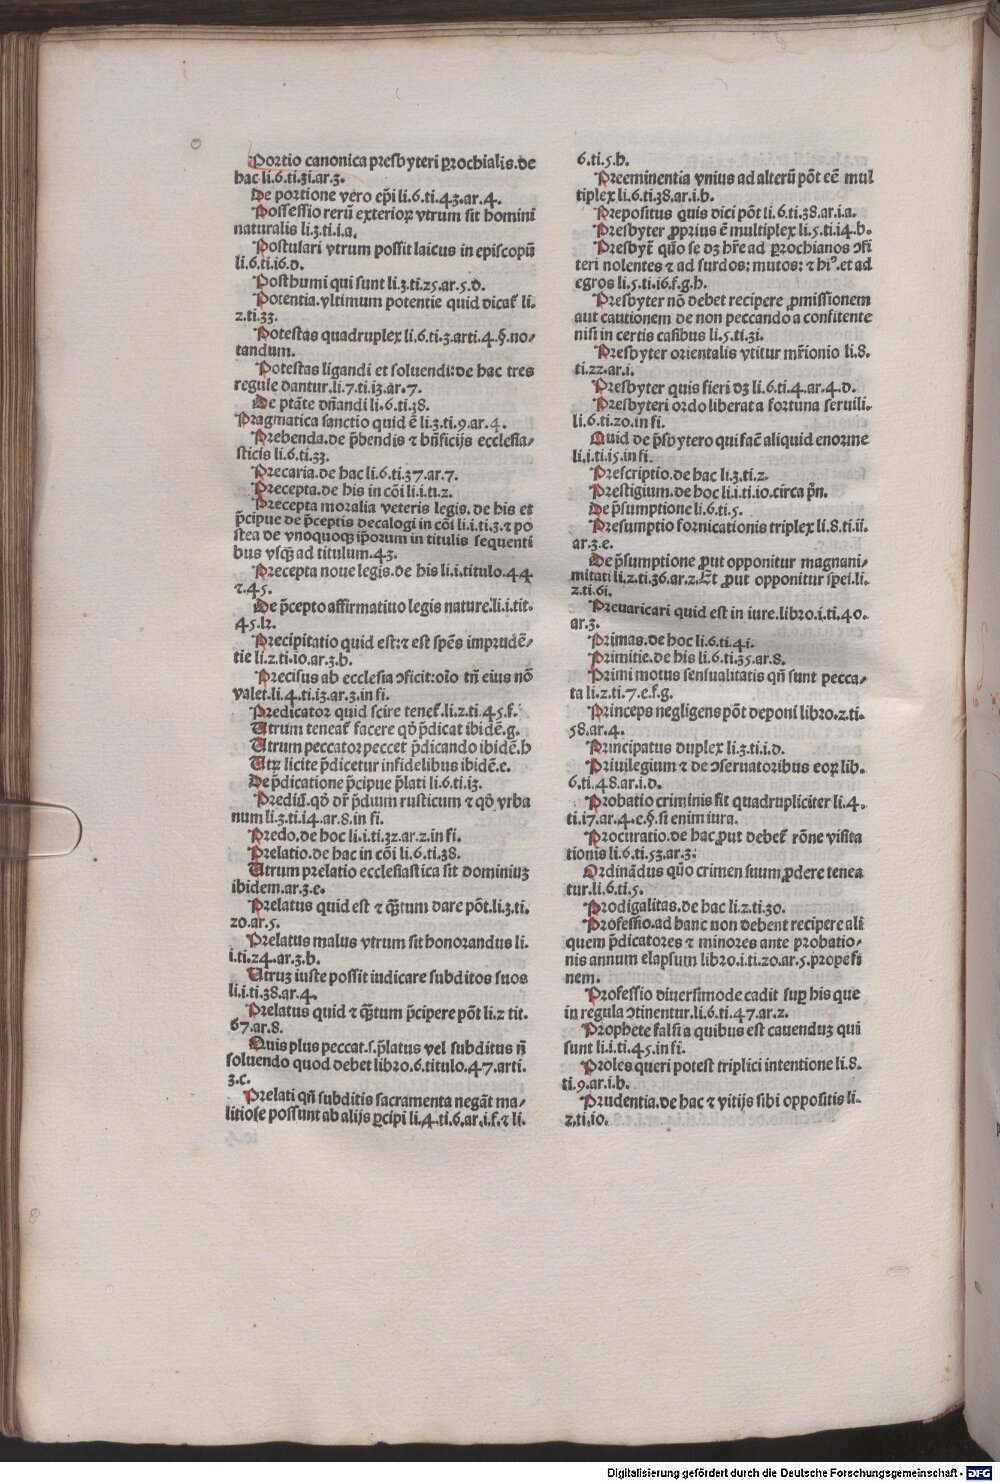 Portio canonica presbyteri ꝑrochialis.de
hac li.6.ti.3i.ar.3.
De portione vero ep̄i li.6.ti.43.ar.4.
Possessio rerū exterioꝝ vtrum sit homini
naturalis li.3.ti.i.a.
Postulari vtrum possit laicus in episcopū
li.6.ti.i6.d.
Posthumi qui sunt li.3.ti.25.ar.5.d.
Potentia.vltimum potentie quid dicat̄ li.
2.ti.33.
Potestas quadruplex li.6.ti.3.arti.4.§.no-
tandum.
Potestas ligandi et soluendi:de hac tres
regule dantur.li.7.ti.i3.ar.7.
De ptāte dn̄andi li.6.ti.38.
Pragmatica sanctio quid ē li.3.ti.9.ar.4.
Prebenda.de p̄bendis ⁊ bn̄ficijs ecclesia-
sticis li.6.ti.33.
Precaria.de hac li.6.ti.37.ar.7.
Precepta.de his in cōi li.i.ti.2.
Precepta moralia veteris legis.de his et
p̄cipue de p̄ceptis decalogi in cōi li.i.ti.3.⁊ po
stea de vnoquoqꝫ ip̄orum in titulis sequenti
bus vsqꝫ ad titulum.43.
Precepta noue legis.de his li.i.titulo.44
⁊.45.
De p̄cepto affirmatiuo legis nature.li.i.tit.
45.lꝛ.
Precipitatio quid est:⁊ est spēs imprudē-
tie li.2.ti.io.ar.3.b.
Precisus ab ecclesia ɔficit:oīo tn̄ eius nō
valet.li.4.ti.i3.ar.3.in fi.
Predicator quid scire tenet̄.li.2.ti.45.f.
Utrum teneat̄ facere qd̓ p̄dicat ibidē.g.
Utrum peccator peccet p̄dicando ibidē.h
Utꝝ licite p̄dicetur infidelibus ibidē.e.
De p̄dicatione p̄cipue p̄lati li.6.ti.i3.
Prediū.qd̓ dr̄ p̄dium rusticum ⁊ qd̓ vrba
num li.3.ti.i4.ar.8.in fi.
Predo.de hoc li.i.ti.32.ar.2.in fi.
Prelatio.de hac in cōi li.6.ti.38.
Utrum prelatio ecclesiastica sit dominiuꝫ
ibidem.ar.3.e.
Prelatus quid est ⁊ qꝫtum dare pōt.li.3.ti.
20.ar.5.
Prelatus malus vtrum sit honorandus li.
i.ti.24.ar.3.b.
Utruꝫ iuste possit iudicare subditos suos
li.i.ti.38.ar.4.
Prelatus quid ⁊ qꝫtum p̄cipere pōt li.2 tit.
67.ar.8.
Quis plus peccat.s.p̄latus vel subditus n̄
soluendo quod debet libro.6.titulo.47.arti.
3.c.
Prelati qn̄ subditis sacramenta negāt ma-
litiose possunt ab alijs ꝑcipi li.4.ti.6.ar.i.f.⁊ li.
6.ti.5.h.
Preeminentia vnius ad alterū pōt eē mul
tiplex li.6.ti.38.ar.i.b.
Prepositus quis dici pōt li.6.ti.38.ar.i.a.
Presbyter ꝓprius ē multiplex li.5.ti.i4.b.
Presbyt̄ quō se dꝫ hr̄e ad ꝑrochianos ɔfi
teri nolentes ⁊ ad surdos:mutos:⁊ hiꝰ.et ad
egros li.5.ti.i6.f.g.h.
Presbyter nō debet recipere ꝓmissionem
aut cautionem de non peccando a confitente
nisi in certis casibus li.5.ti.3i.
Presbyter orientalis vtitur mr̄ionio li.8.
ti.22.ar.i.
Presbyter quis fieri dꝫ li.6.ti.4.ar.4.d.
Presbyteri ordo liberat a fortuna seruili.
li.6.ti.20.in fi.
Quid de p̄sbytero qui facē aliquid enorme
li.i.ti.i5.in fi.
Prescriptio.de hac li.3.ti.2.
Prestigium.de hoc li.i.ti.io.circa pn̄.
De p̄sumptione li.6.ti.5.
Presumptio fornicationis triplex li.8.ti.ii.
ar.3.e.
De p̄sumptione ꝓut opponitur magnani-
mitati li.2.ti.36.ar.2.Et ꝓut opponitur spei.li.
2.ti.6i.
Preuaricari quid est in iure.libro.i.ti.40.
ar.3.
Primas.de hoc li.6.ti.4i.
Primitie.de his li.6.ti.35.ar.8.
Primi motus sensualitatis qn̄ sunt pecca-
ta li.2.ti.7.e.f.g.
Princeps negligens pōt deponi libro.2.ti.
58.ar.4.
Principatus duplex li.3.ti.i.d.
Priuilegium ⁊ de ɔseruatoribus eoꝝ lib.
6.ti.48.ar.i.d.
Probatio criminis fit quadrupliciter li.4.
ti.i7.ar.4.e.§.si enim iura.
Procuratio.de hac ꝓut debet̄ rōne visita
tionis li.6.ti.53.ar.3:
Ordinādus quō crimen suum ꝓdere tenea
tur.li.6.ti.5.
Prodigalitas.de hac li.2.ti.30.
Professio.ad hanc non debent recipere ali
quem p̄dicatores ⁊ minores ante probatio-
nis annum elapsum libro.i.ti.20.ar.5.prope fi
nem.
Professio diuersimode cadit suꝑ his que
in regula ɔtinentur.li.6.ti.47.ar.2.
Prophete falsi a quibus est cauenduꝫ qui
sunt li.i.ti.45.in fi.
Proles queri potest triplici intentione li.8.
ti.9.ar.i.b.
Prudentia.de hac ⁊ vitijs sibi oppositis li.
2.ti.io.
Digitalisierung gefördert durch die Deutsche Forschungsgemeinschaft - DFG